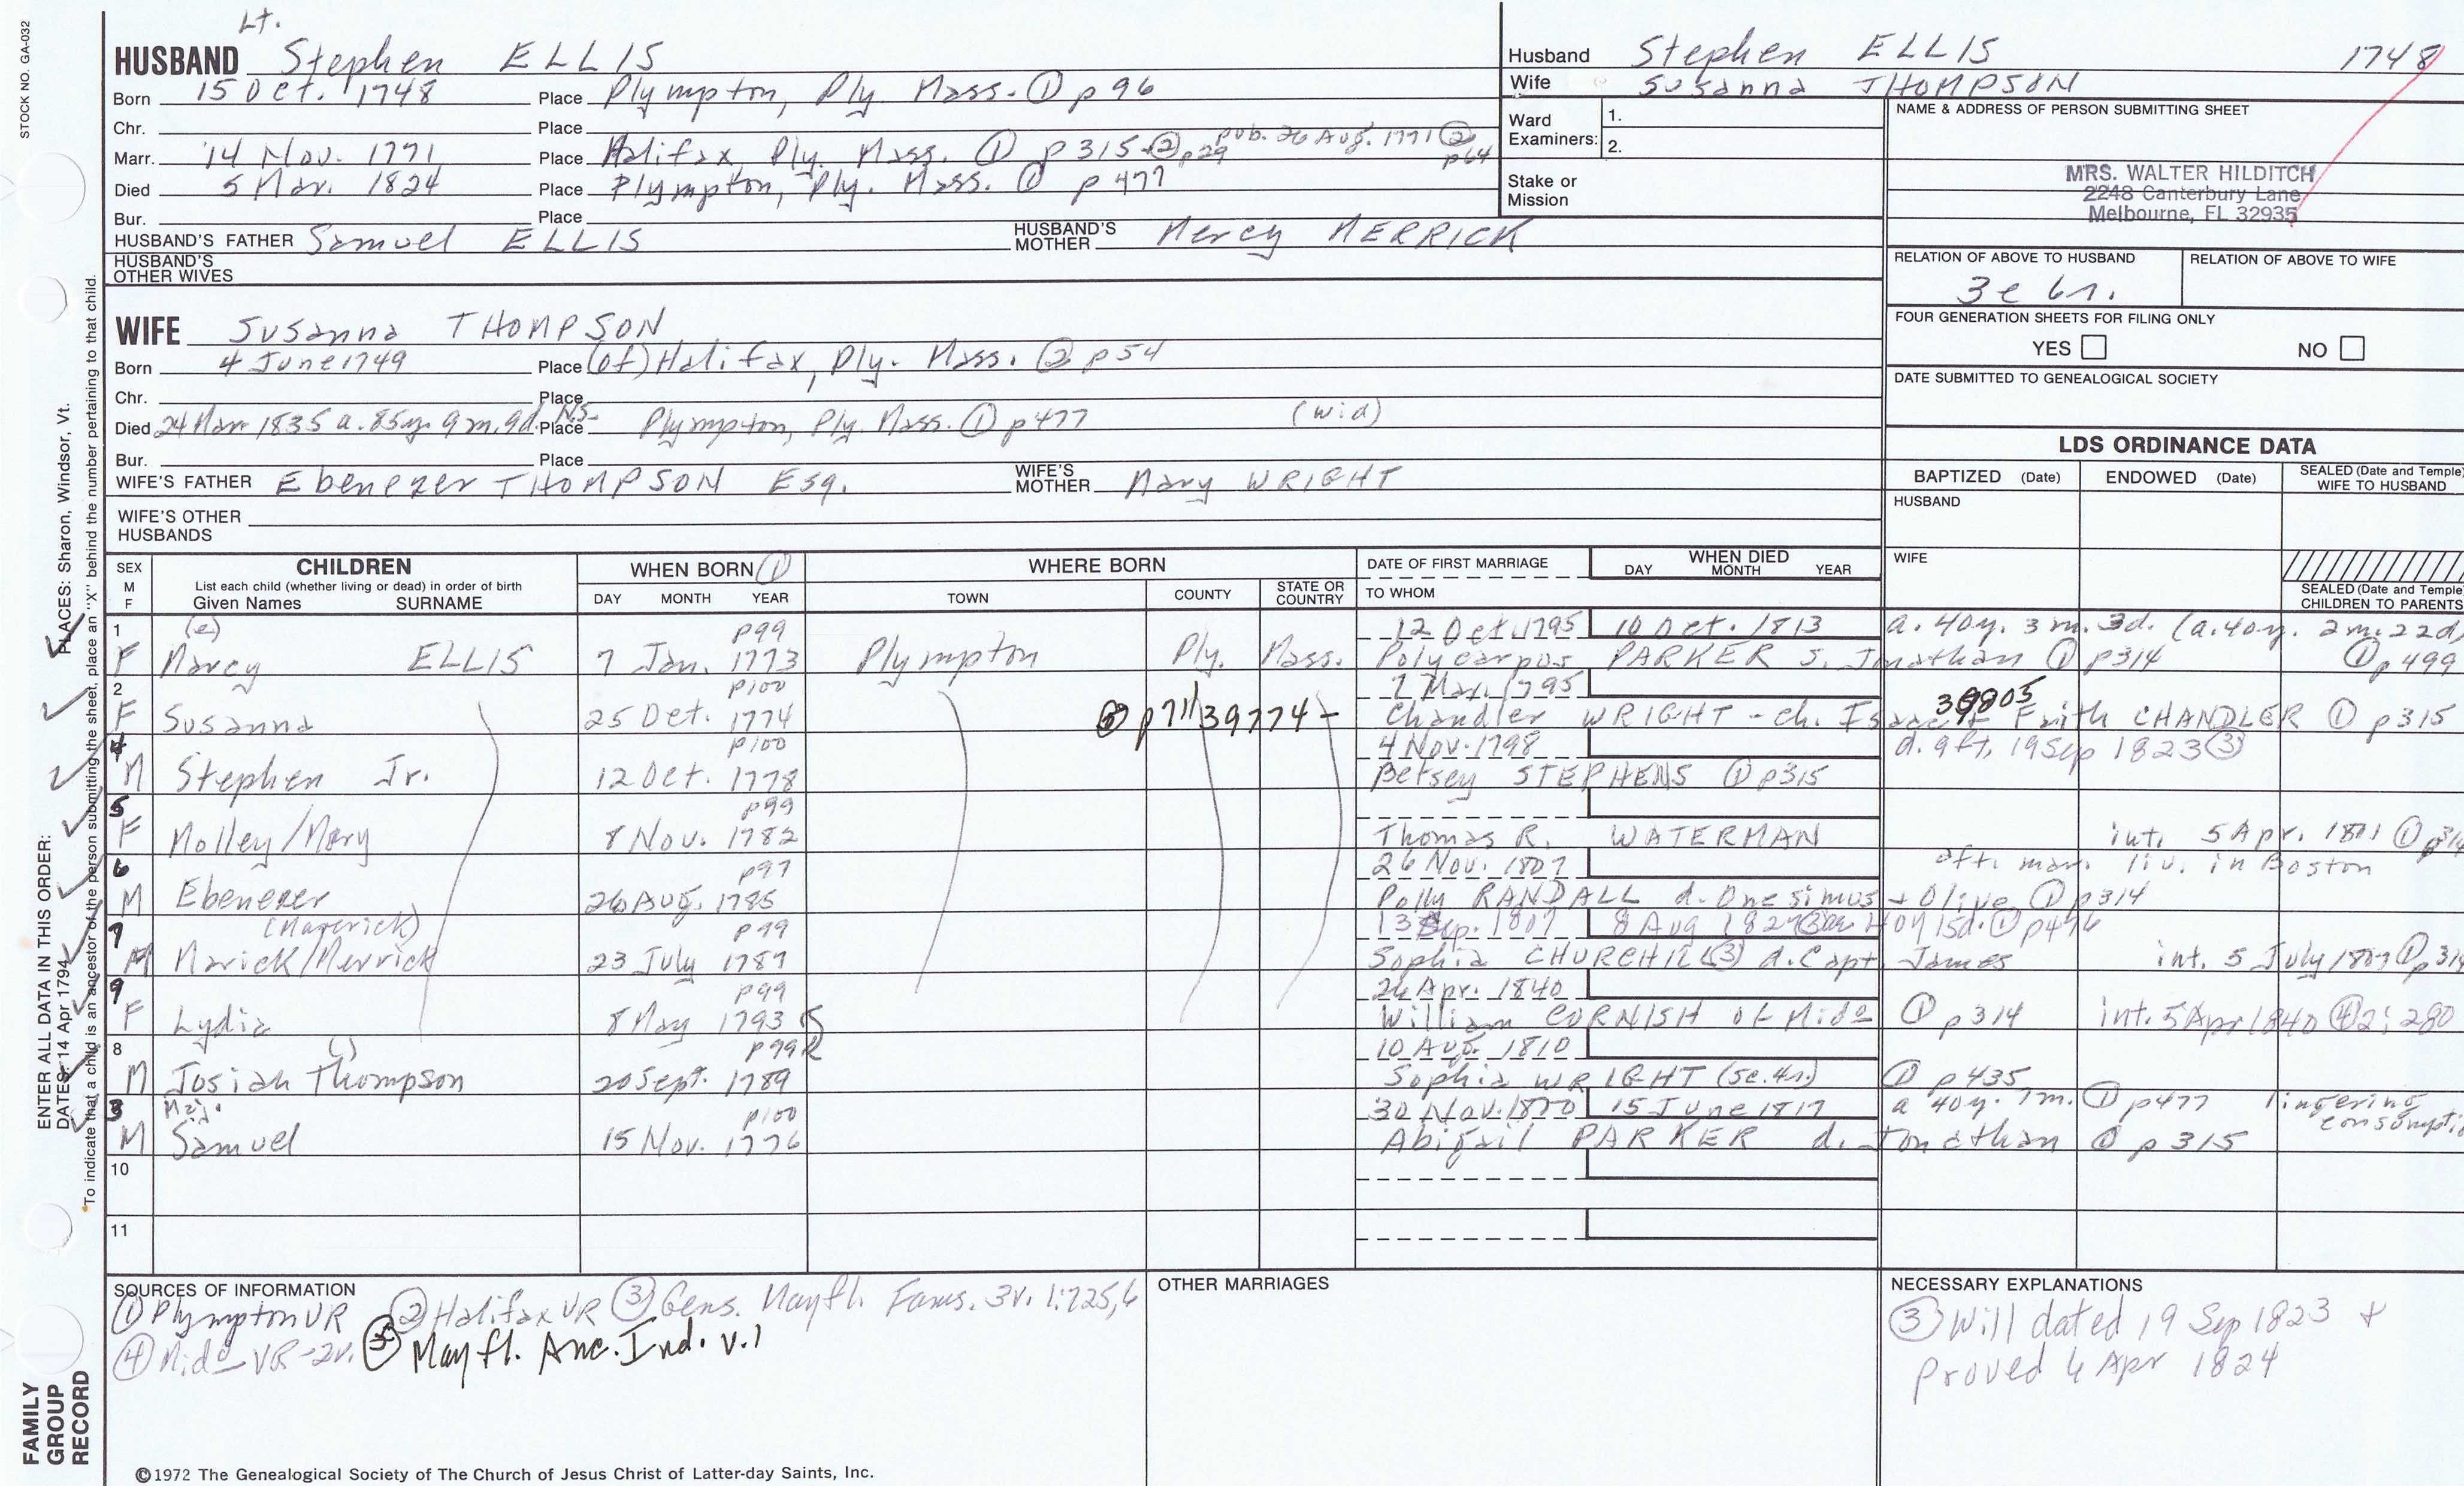 STOCK NO. GA-032
Lt.
HUSBAND Stephen ELLIS
Born 15 Oct. 1748 Place Plympton, Ply. Mass. ① p96
Chr. Place
pub. 26 Aug. 1771 ② p64
Marr. 14 Nov. 1771 Place Halifax, Ply. Mass. ① p315 ② p29
Died 5 Mar. 1824 Place Plympton, Ply. Mass. ① p477
Bur. Place
HUSBAND'S FATHER Samuel ELLIS HUSBAND'S MOTHER Mercy MERRICK
HUSBAND'S OTHER WIVES
WIFE Susanna THOMPSON
Born 4 June 1749 Place (of) Halifax, Ply. Mass. ② p54
Chr. Place
Died 24 Mar 1835 a. 85y. 9m. 9d. N.S. Place Plympton, Ply. Mass. ① p477 (wid)
Bur. Place
WIFE'S FATHER Ebenezer THOMPSON Esq. WIFE'S MOTHER Mary WRIGHT
WIFE'S OTHER HUSBANDS
Husband Stephen ELLIS 1748
Wife Susanna THOMPSON
Ward Examiners: 1.
2.
Stake or Mission
NAME & ADDRESS OF PERSON SUBMITTING SHEET
MRS. WALTER HILDITCH
2248 Canterbury Lane
Melbourne, FL 32935
RELATION OF ABOVE TO HUSBAND RELATION OF ABOVE TO WIFE
3c 6r.
FOUR GENERATION SHEETS FOR FILING ONLY
YES NO
DATE SUBMITTED TO GENEALOGICAL SOCIETY
LDS ORDINANCE DATA
BAPTIZED (Date) ENDOWED (Date) SEALED (Date and Temple) WIFE TO HUSBAND
HUSBAND
WIFE
SEALED (Date and Temple) CHILDREN TO PARENTS
SEX M F
CHILDREN
List each child (whether living or dead) in order of birth
Given Names SURNAME
WHEN BORN ①
DAY MONTH YEAR
WHERE BORN
TOWN COUNTY STATE OR COUNTRY
DATE OF FIRST MARRIAGE
TO WHOM
WHEN DIED
DAY MONTH YEAR
1 (e) p99 12 Oct. 1795 10 Oct. 1813 a. 40y. 3m. 3d. (a. 40y. 2m. 22d)
F Marcy ELLIS 7 Jan. 1773 Plympton Ply. Mass. Polycarpus PARKER s. Jonathan ① p314 ① p499
2 p100 7 Mar. 1795
F Susanna 25 Oct. 1774 ⑤ p711 39774- Chandler WRIGHT - ch. Isaac & Faith CHANDLER ① p315
4 p100 4 Nov. 1798 d. aft. 19 Sep 1823 ③
M Stephen Jr. 12 Oct. 1778 Betsey STEPHENS ① p315
5 p99
F Molley/Mary 8 Nov. 1782 Thomas R. WATERMAN int. 5 Apr. 1801 ① p314
6 p97 26 Nov. 1807 aft. mar. liv. in Boston
M Ebenezer 26 Aug. 1785 Polly RANDALL d. Onesimus + Olive ① p314
7 (Maverick) p99 13 Sep. 1807 8 Aug 1827 ① p476
M Marick/Merrick 23 July 1787 Sophia CHURCHILL ③ d. Capt. James int. 5 July 1807 ① p314
9 p99 26 Apr. 1840
F Lydia 8 May 1793 William CORNISH of Mido ① p314 int. 5 Apr 1840 ④ 2:280
8 p99 10 Aug. 1810
M Josiah Thompson 20 Sept. 1789 Sophia WRIGHT (5c. 4r.) ① p435
3 Maj. p100 30 Nov. 15 June 1817 a 40y. 7m. ① p477 lingering
M Samuel 15 Nov. 1776 Abigail PARKER d. Jonathan ① p315
10
11
SOURCES OF INFORMATION
① Plympton VR ② Halifax VR ③ Gens. Mayfl. Fams. 3v. 1:725,6
④ Mido VR-2v. ⑤ Mayfl. Anc. Ind. v.1
OTHER MARRIAGES
NECESSARY EXPLANATIONS
③ Will dated 19 Sep 1823 +
proved 6 Apr 1824
ENTER ALL DATA IN THIS ORDER:
DATES: 14 Apr 1794 PLACES: Sharon, Windsor, Vt.
*To indicate that a child is an ancestor of the person submitting the sheet, place an "X" behind the number pertaining to that child.
FAMILY GROUP RECORD
©1972 The Genealogical Society of The Church of Jesus Christ of Latter-day Saints, Inc.